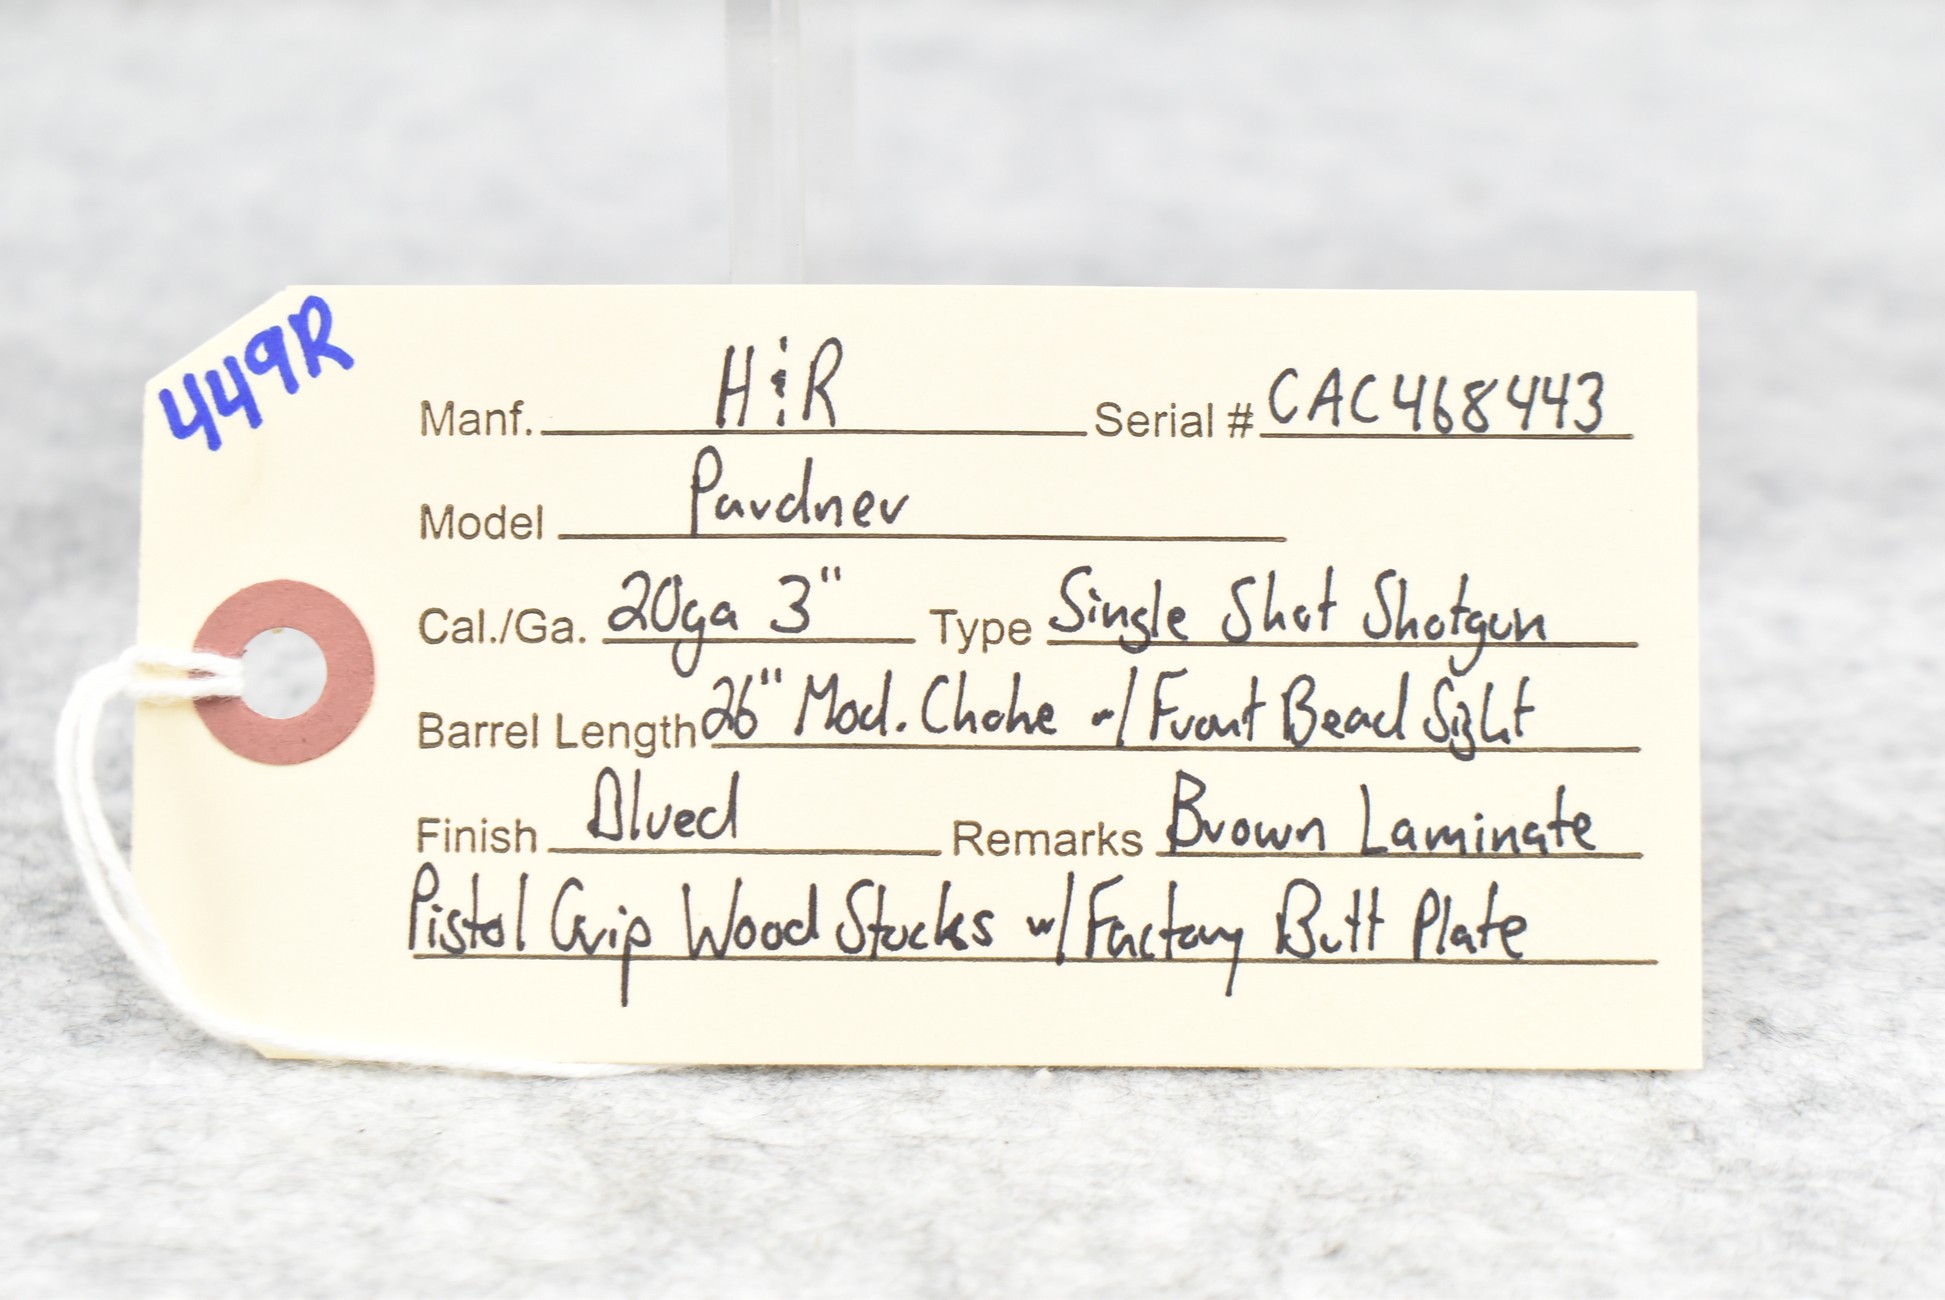 449R
Manf. H & R Serial # CAC468443
Model Pardner
Cal./Ga. 20ga 3" Type Single Shot Shotgun
Barrel Length 26" Mod. Choke w/ Front Bead Sight
Finish Blued Remarks Brown Laminate
Pistol Grip Wood Stocks w/ Factory Butt Plate